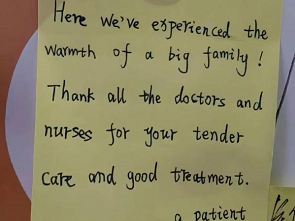 Here we've experienced the
warmth of a big family!
Thank all the doctors and
nurses for your tender
care and good treatment.
a patient